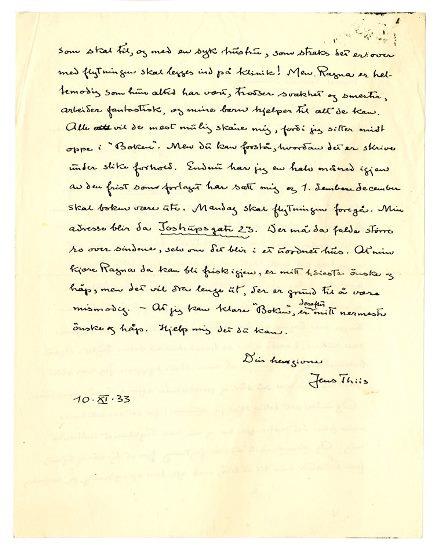 som skal til, og med en syk hustru, som straks det er over
med flytningen skal legges ind på klinik! Men Ragna er hel-
temodig som hun altid har vært, trodser svakhet og smerte,
arbeider fantastisk, og mine barn hjelper til alt de kan.
Alle vil de mest mulig skåne mig, fordi jeg sitter midt
oppe i "Boken". Men du kan forstå, hvordan det er å skrive
under slike forhold. Endnu har jeg en halv måned igjen
av den frist som forlaget har satt mig og 1. december
skal boken være ute. Mandag skal flytningen foregå. Min
adresse blir da 23. Der må da falde større
ro over sindene, selv om det blir i et uordnet hus. At min
kjære Ragna da kan bli frisk igjen, er mitt høieste ønske og
håp, men det vil dra lenge ut, der er grund til å være
mismodig. — At jeg kan klare "Boken", er derefter mitt nermeste
ønske og håp. Hjelp mig det du kan.
Din hengivne
Jens Thiis
10·XI·33